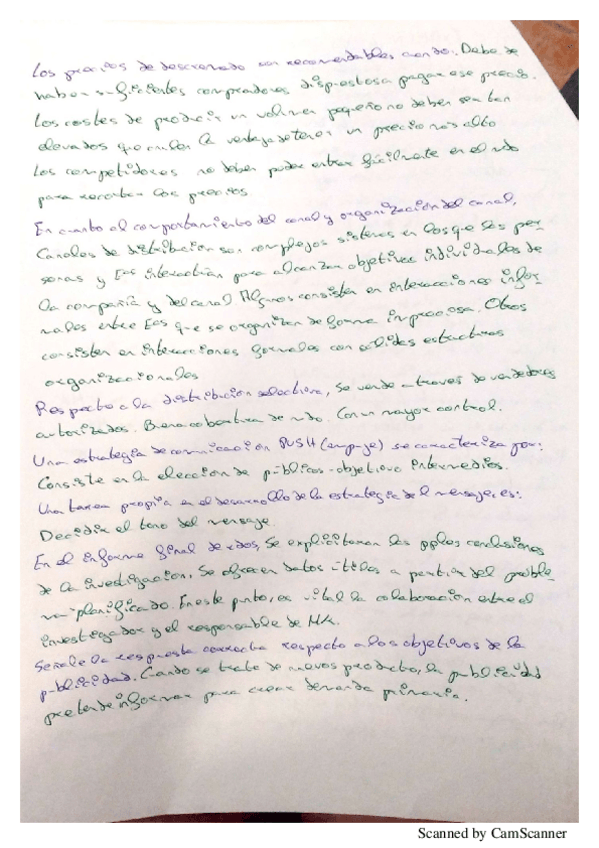 Los precios de descremado son recomendables cuando: Debe de
haber suficientes compradores dispuestos a pagar ese precio.
Los costes de producir un volumen pequeño no deben ser tan
elevados que anulen la ventaja de tener un precio más alto
Los competidores no deben poder entrar fácilmente en el mdo
para recortar los precios.
En cuanto al comportamiento del canal y organización del canal,
Canales de distribución son complejos sistemas en los que las per
sonas y Eas interactúan para alcanzar objetivos individuales de
la compañía y del canal. Algunos consisten en interacciones infor
males entre Eas que se organizan de forma imprecisa. Otros
consisten en interacciones formales con sólidas estructuras
organizacionales
Respecto a la distribución selectiva, Se vende a través de vendedores
autorizados. Buena cobertura de mdo. Con mayor control.
Una estrategia de comunicación PUSH (empuje) se caracteriza por:
Consiste en la elección de públicos-objetivo intermedios.
Una tarea propia en el desarrollo de la estrategia del mensaje, es:
Decidir el tono del mensaje.
En el informe final de rdos, Se explicitaran las pples conclusiones
de la investigación. Se ofrecen datos útiles a partir del proble
ma planificado. En este punto, es vital la colaboración entre el
investigador y el responsable de Mk.
Señale la respuesta correcta respecto a los objetivos de la
publicidad. Cuando se trate de nuevos producto, la publicidad
pretende informar para crear demanda primaria.
Scanned by CamScanner